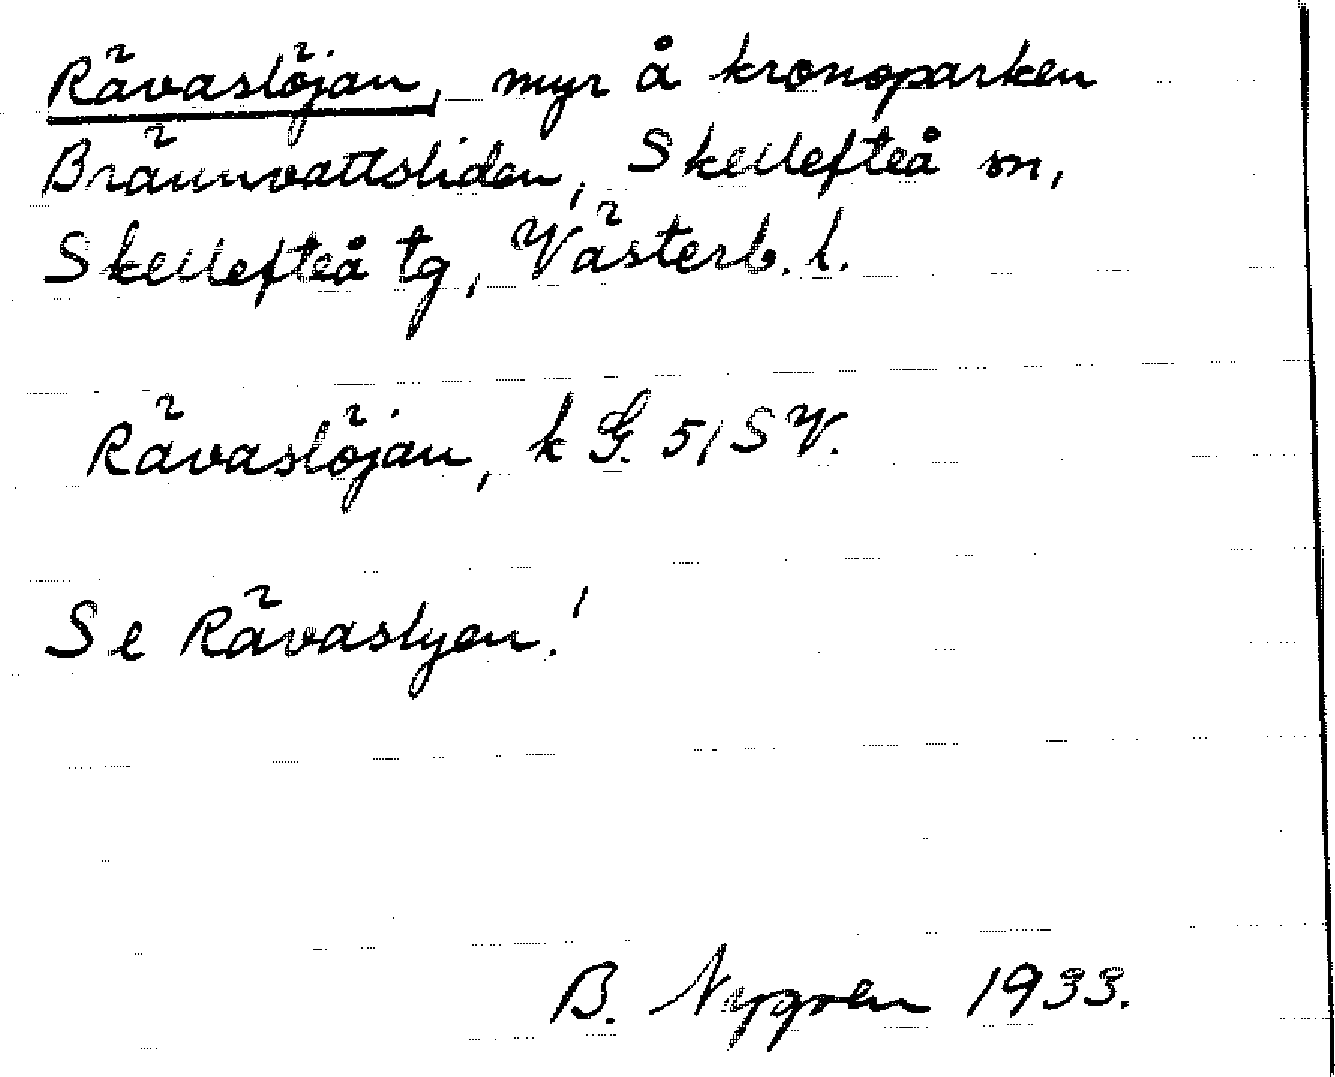 Rävaslöjan, myr å kronoparken
Brännvattsliden, Skellefteå sn,
Skellefteå tg, Västerb. l.
Rävaslöjan, k G. 51 SV.
Se Rävaslyen!
B. Nygren 1933.